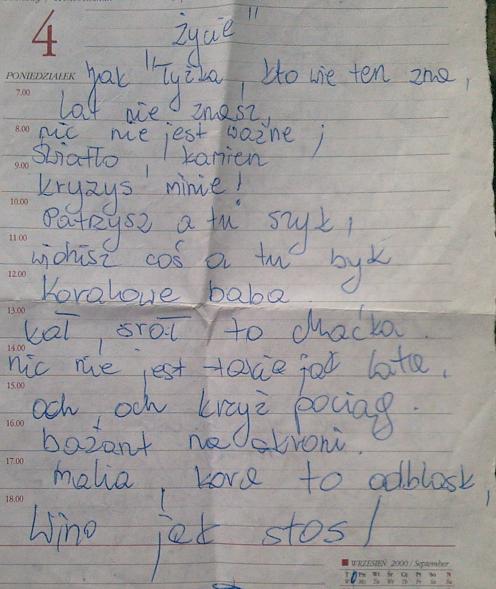 4
Życie"
PONIEDZIAŁEK
Jak "Łyżka, kto wie ten zna,
7.00
lat nie znasz,
8.00
nic nie jest ważne ;
9.00
Światło, kamien
kryzys, minie!
10.00
Patrzysz a tu szyk,
11.00
widzisz coś a tu byk
12.00
Koralowe baba.
13.00
kat, śrot to chaćka.
14.00
nic nie jest takie jak lata.
15.00
och, och krzyż pociąg.
16.00
bażant na skroni.
17.00
malia, kora to odblask,
18.00
Wino jak stos!
WRZESIEŃ 2000 / September
Pn Wt Śr Cz Pt So N